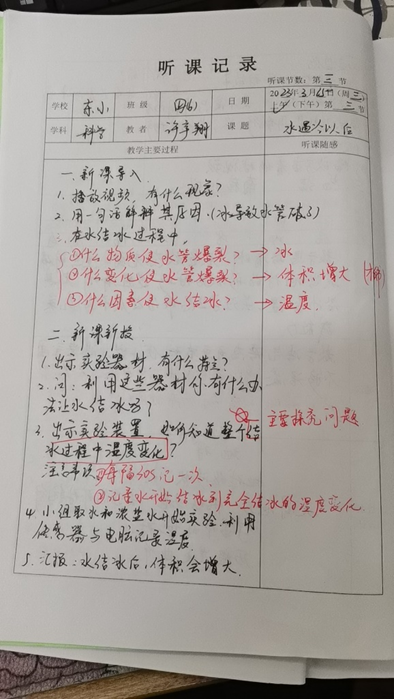 听课记录
听课节数：第 三 节
学校 东小 班级 四(6) 日期 2023年3月21日(周三)
上午(下午)第 三 节
学科 科学 教者 许享翔 课题 水遇冷以后
教学主要过程 听课随感
一、新课导入
1. 播放视频，有什么现象？
2. 用一句话解释其原因。(冰导致水管破了)
在水结冰过程中，
①什么物质使水管爆裂？→ 冰
②什么变化使水管爆裂？→ 体积增大
③什么因素使水结冰？→ 温度
二、新课新授
1. 出示实验器材，有什么
2. 问：利用这些器材你有什么办
法让水结冰吗？
主要探究问题
3. 出示实验装置，如何知道整个结
冰过程中温度变化？
注意事项 ①每隔30S记一次
②记录水开始结冰到完全结冰的温度变化
4. 小组取水和浓盐水开始实验，利用
传感器与电脑记录温度
5. 汇报：水结冰后，体积会增大。